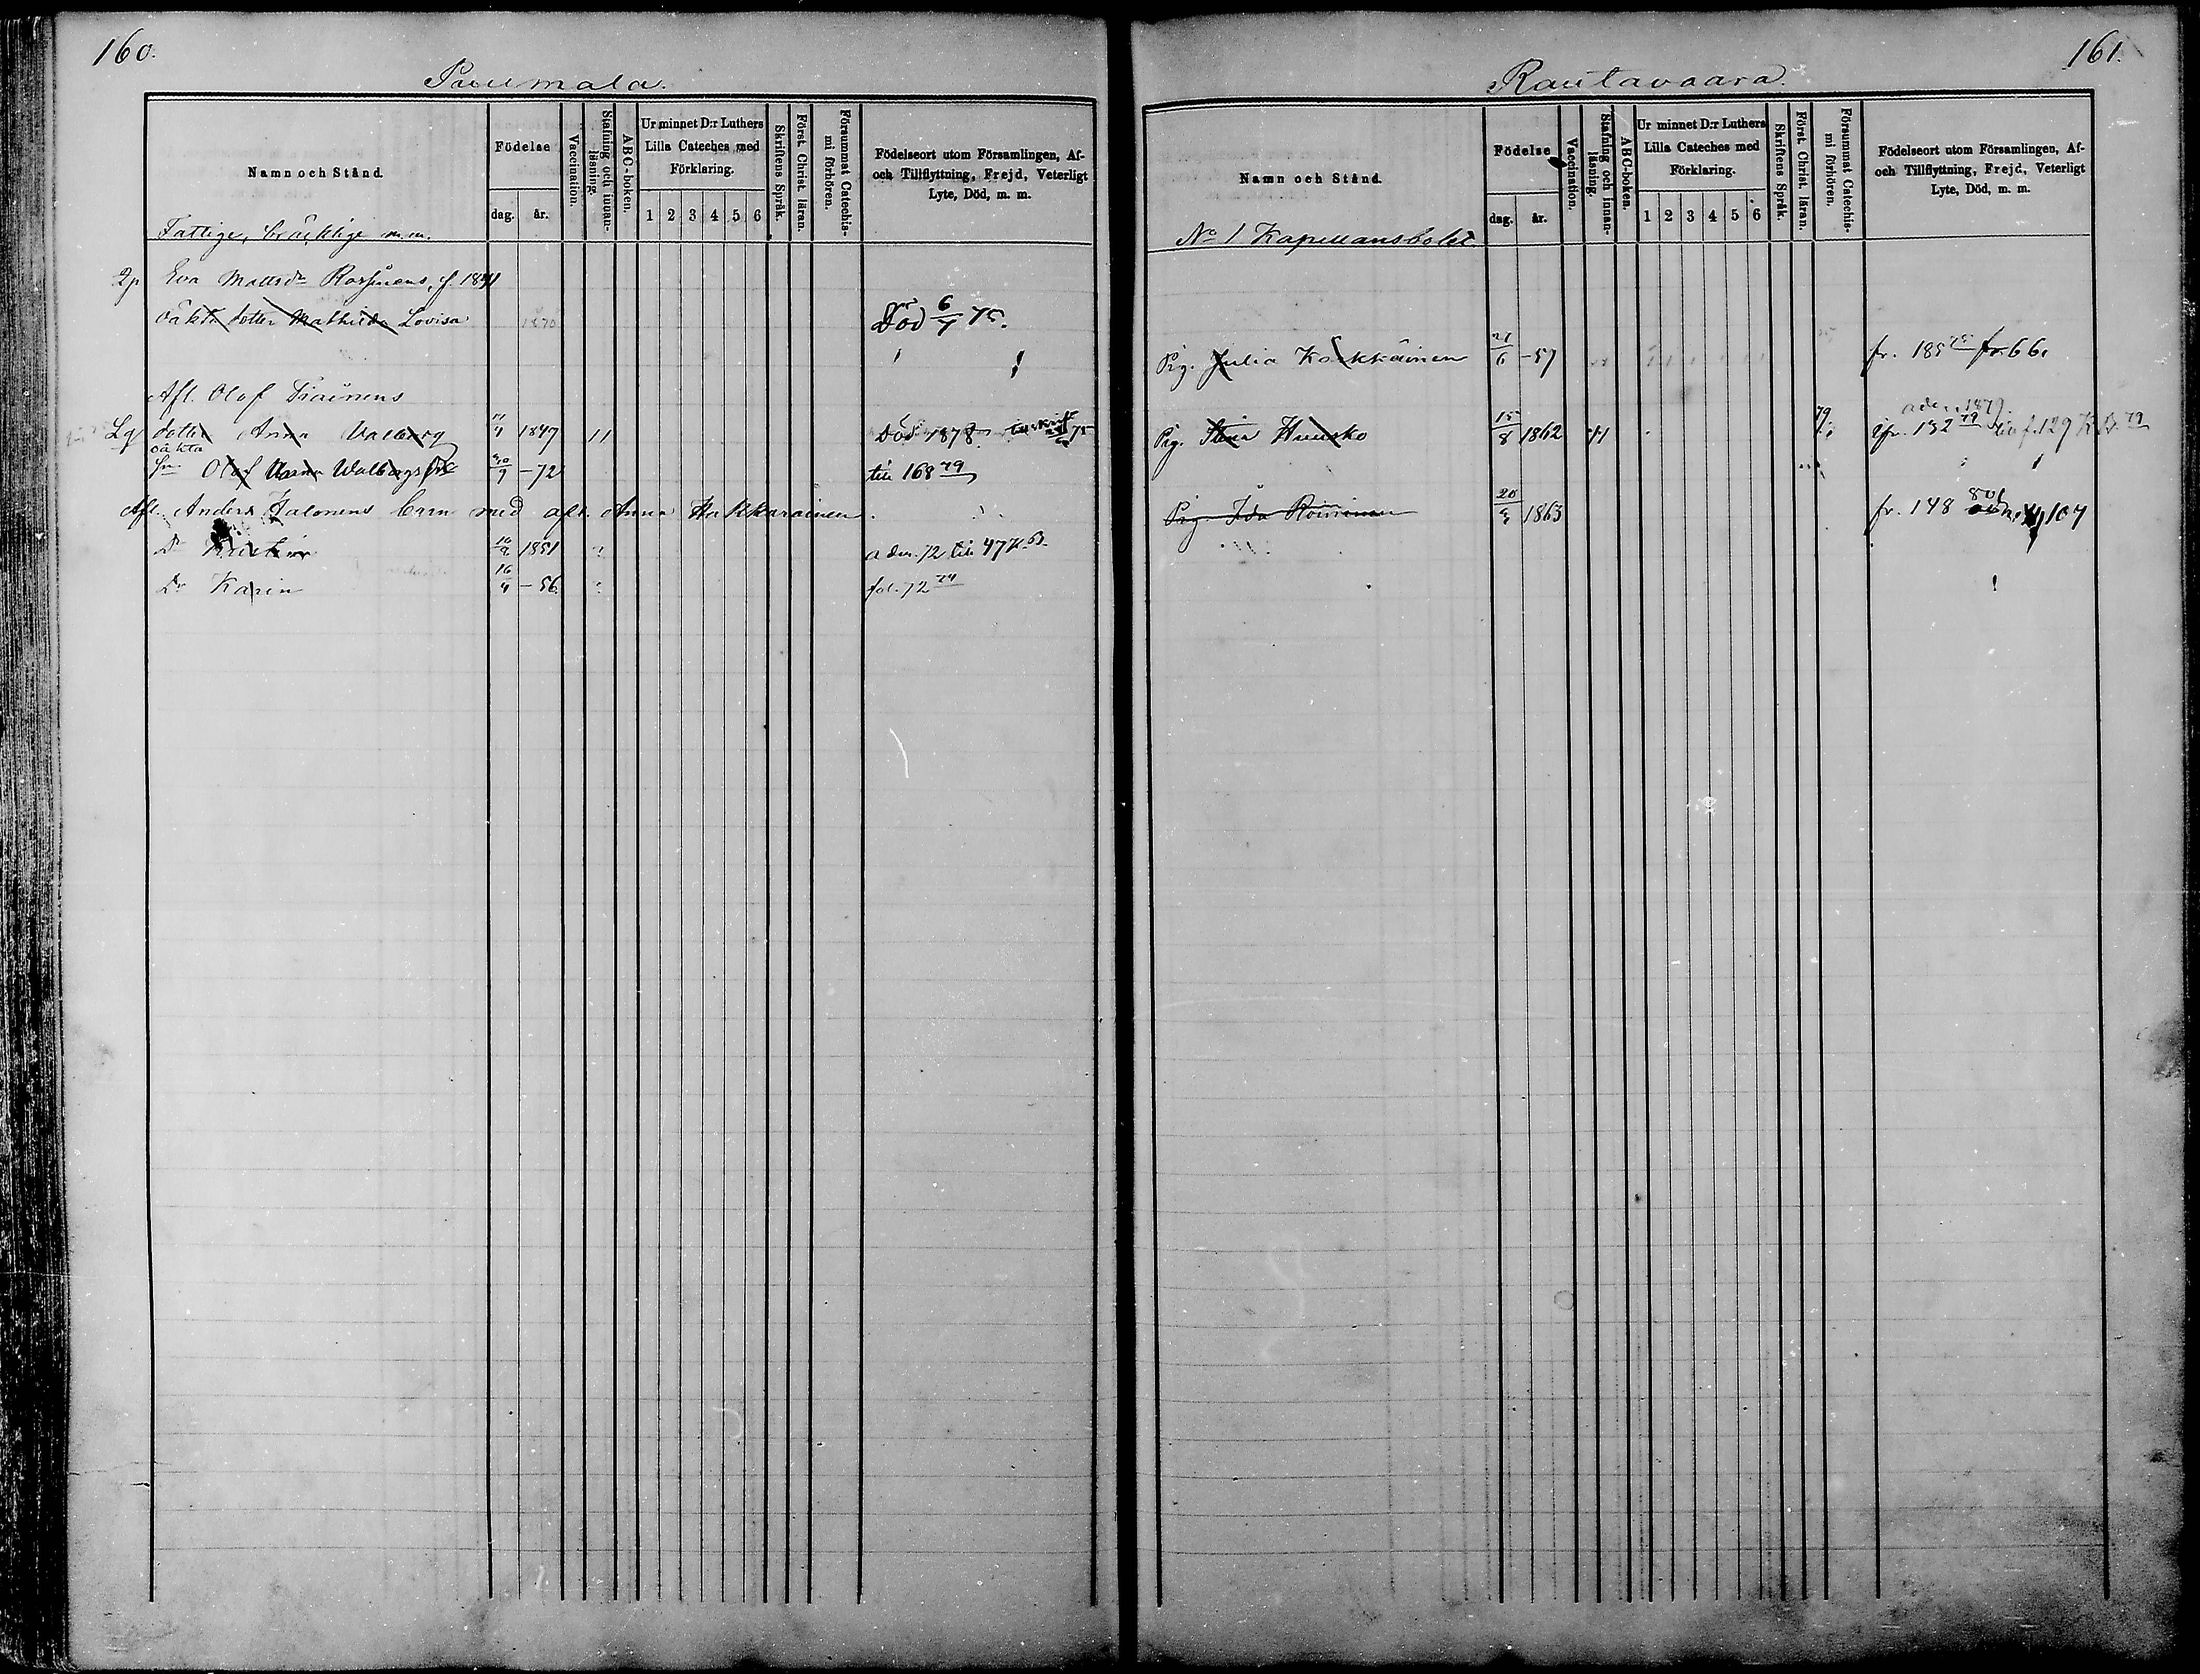 160.
Puumala.
Namn och Stånd.
Födelse
dag.
år.
Vaccination.
Stafning och innan-
läsning.
ABC-boken.
Ur minnet D:r Luthers
Lilla Cateches med
Förklaring.
1 2 3 4 5 6
Skriftens Språk.
Först. Christ. läran.
Försummat Catechis-
mi förhören.
Födelseort utom Församlingen, Af-
och Tillflyttning, Frejd, Veterligt
Lyte, Död, m. m.
Fattige, bräcklige m.m.
2p Eva Mattsdr f. 1841
oäkta dotter Mathilda Lovisa 1870 Död 6/7 75.
Afl. Olof Piainens
Lg dotter Anna Valborg 1847 11 Död 1878
oäkta
Sn Olof Anna Walborgs 30/9 – 72 till 168 79
Afl. Anders Jalonens barn med afl. Anna Hakkarainen
Dr 1851 aden. 72 till 47 K.B.
Dr Karin 16/4 – 56. fol. 72 74
161.
Rautavaara.
Namn och Stånd.
Födelse
dag.
år.
Vaccination.
Stafning och innan-
läsning.
ABC-boken.
Ur minnet D:r Luthers
Lilla Cateches med
Förklaring.
1 2 3 4 5 6
Skriftens Språk.
Först. Christ. läran.
Försummat Catechis-
mi förhören.
Födelseort utom Församlingen, Af-
och Tillflyttning, Frejd, Veterligt
Lyte, Död, m. m.
No 1 Kapellansbolet
Pig. Julia 21/6 – 57 fr. 185 75 66.
aden 1879.
Pig. Stina Huusko 15/8 1862 79. fr. 132 79 f. 129 K.B. 79
Pig. Ida 20/4 1863 fr. 148 80 104